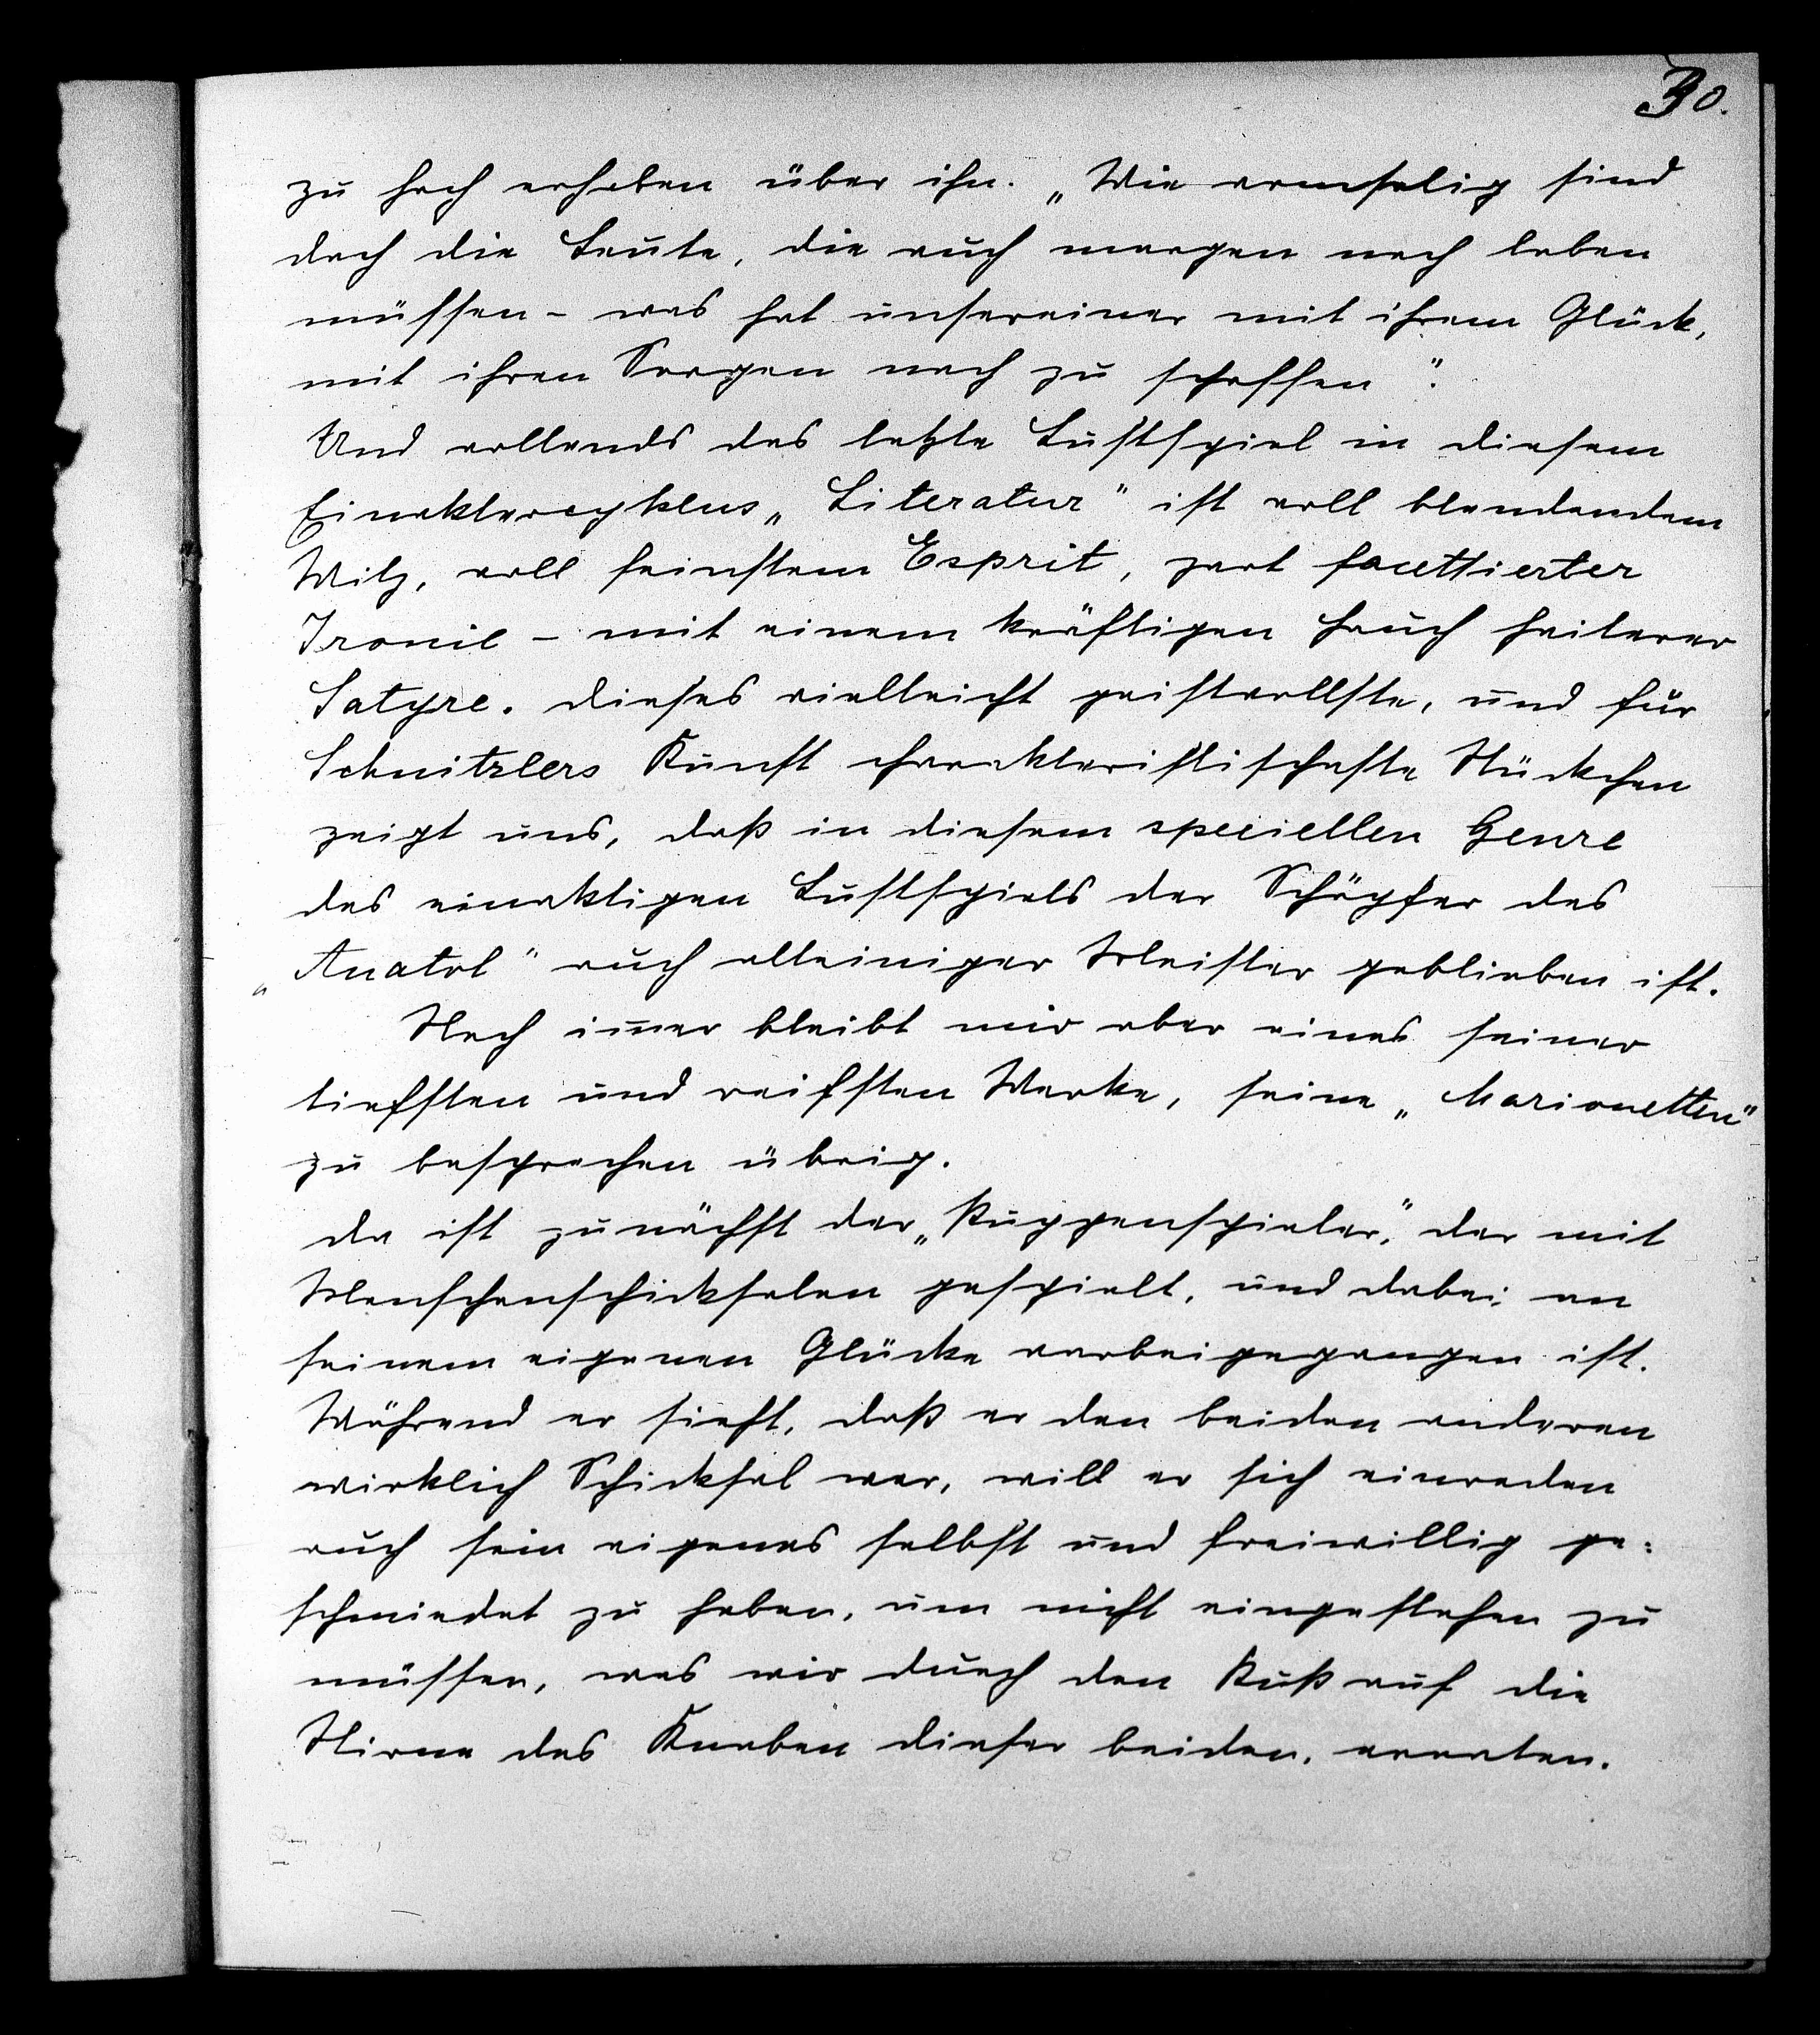 30.
zu hoch erhaben über ihn. „Wie armselig sind
doch die Leute, die auch morgen noch leben
müssen – was hat unsereiner mit ihrem Glück,
mit ihren Sorgen noch zu schaffen".
Und vollends das letzte Lustspiel in diesem
Einaktercyklus „Literatur" ist voll blendendem
Witz, voll feinstem Esprit, zart facettierter
Ironie – mit einem kräftigen Hauch heiterer
Satyre. Dieses vielleicht geistvollste, und für
Schnitzlers Kunst charakteristischste Stückchen
zeigt uns, daß in diesem speciellen Genre
des einaktigen Lustspiels der Schöpfer des
„Anatol" auch alleiniger Meister geblieben ist.
Noch im̄er bleibt mir aber eines seiner
tiefsten und reifsten Werke, seine „Marionetten"
zu besprechen übrig.
Da ist zunächst der „Puppenspieler," der mit
Menschenschicksalen gespielt, und dabei an
seinem eigenen Glücke vorbeigegangen ist.
Während er sieht, daß er den beiden anderen
wirklich Schicksal war, will er sich einreden
auch sein eigenes selbst und freiwillig ge=
schmiedet zu haben, um nicht eingestehen zu
müssen, was wir durch den Kuß auf die
Stirne des Knaben dieser beiden, erraten.